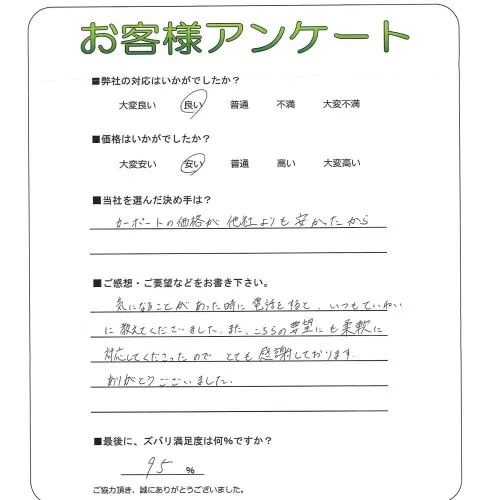 お客様アンケート
■弊社の対応はいかがでしたか?
大変良い 良い 普通 不満 大変不満
■価格はいかがでしたか?
大変安い 安い 普通 高い 大変高い
■当社を選んだ決め手は?
カーポートの価格が他社よりも安かったから
■ご感想・ご要望などをお書き下さい。
気になることがあった時に電話を捨て、いつもていねい
に教えてくださいました。また、こちらの要望にも柔軟に
対応してくださったのでとても感謝しております。
ありがとうございました。
■最後に、ズバリ満足度は何%ですか?
95 %
ご協力頂き、誠にありがとうございました。